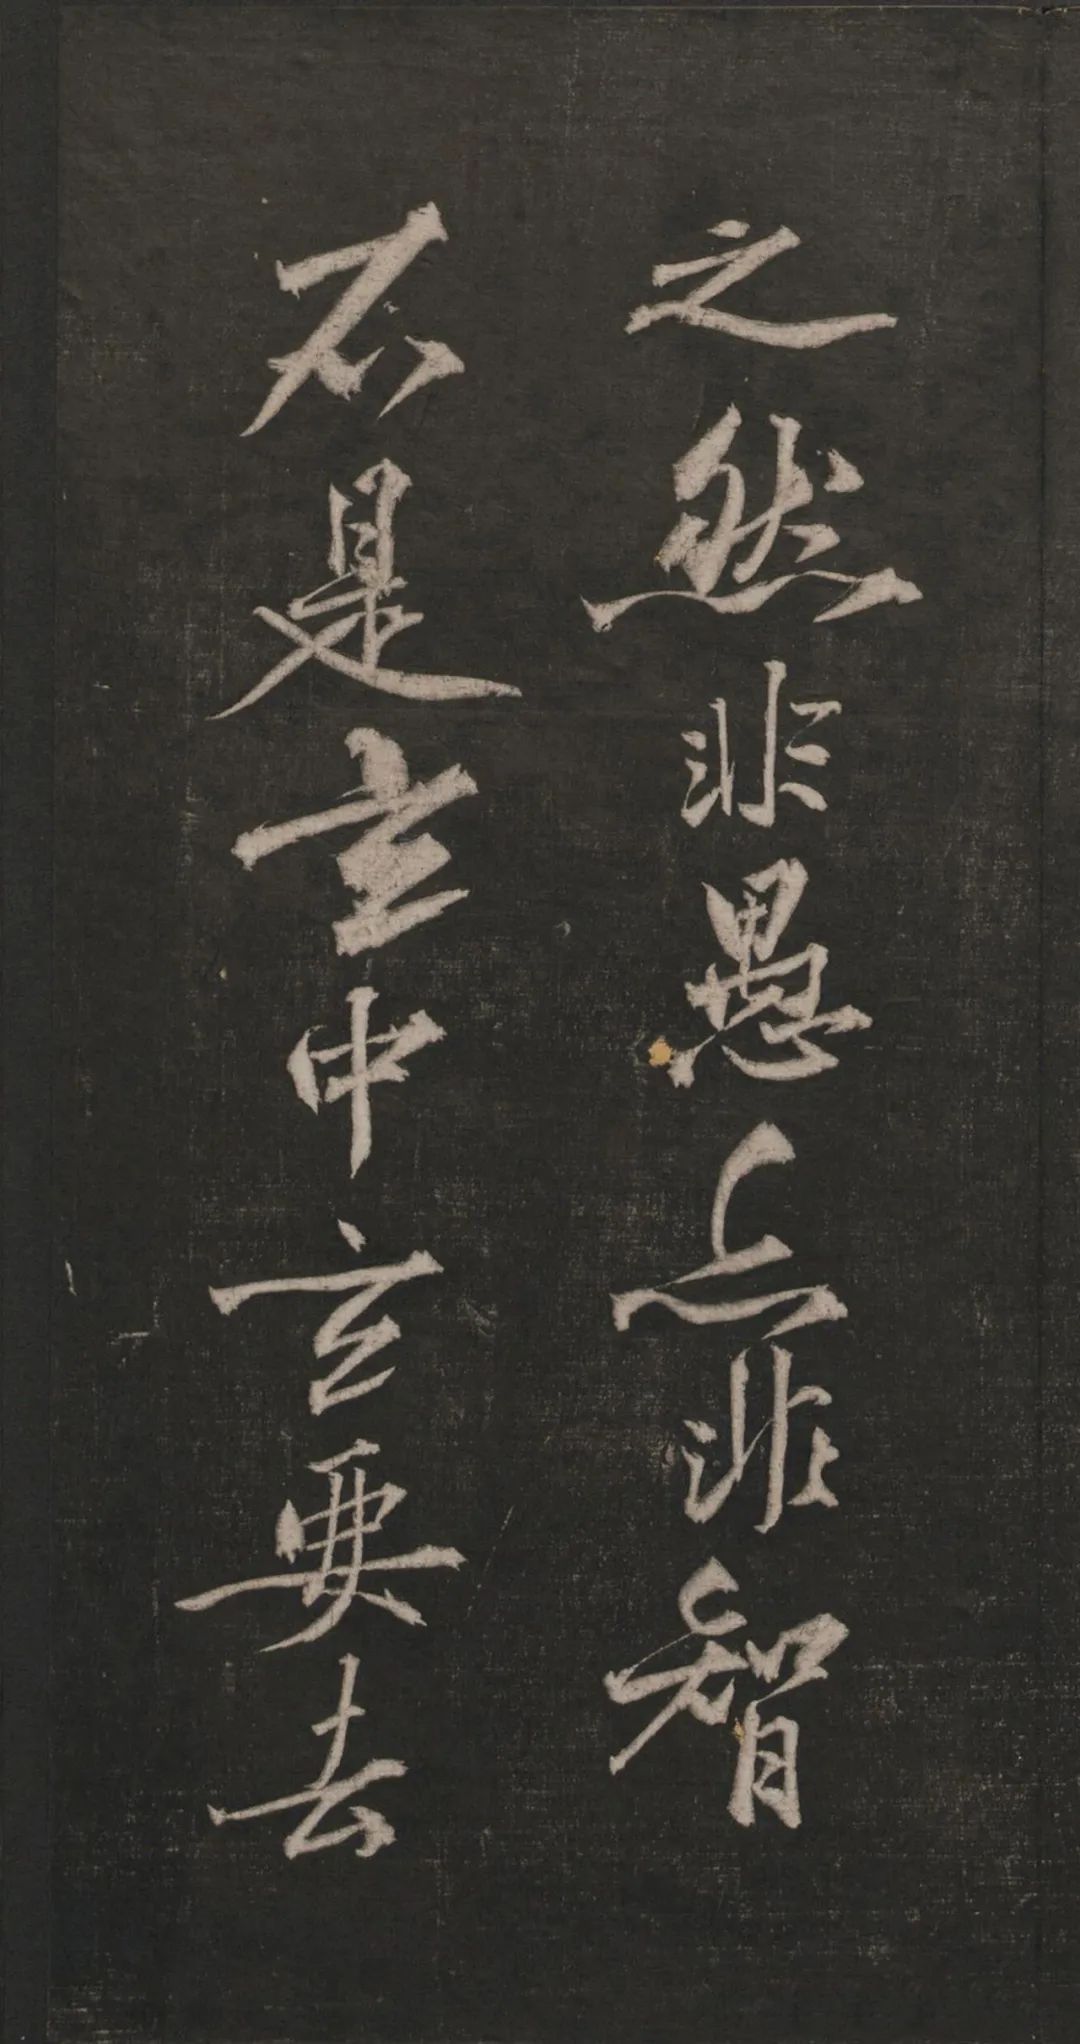 之然非愚亦非智
不是玄中玄要去